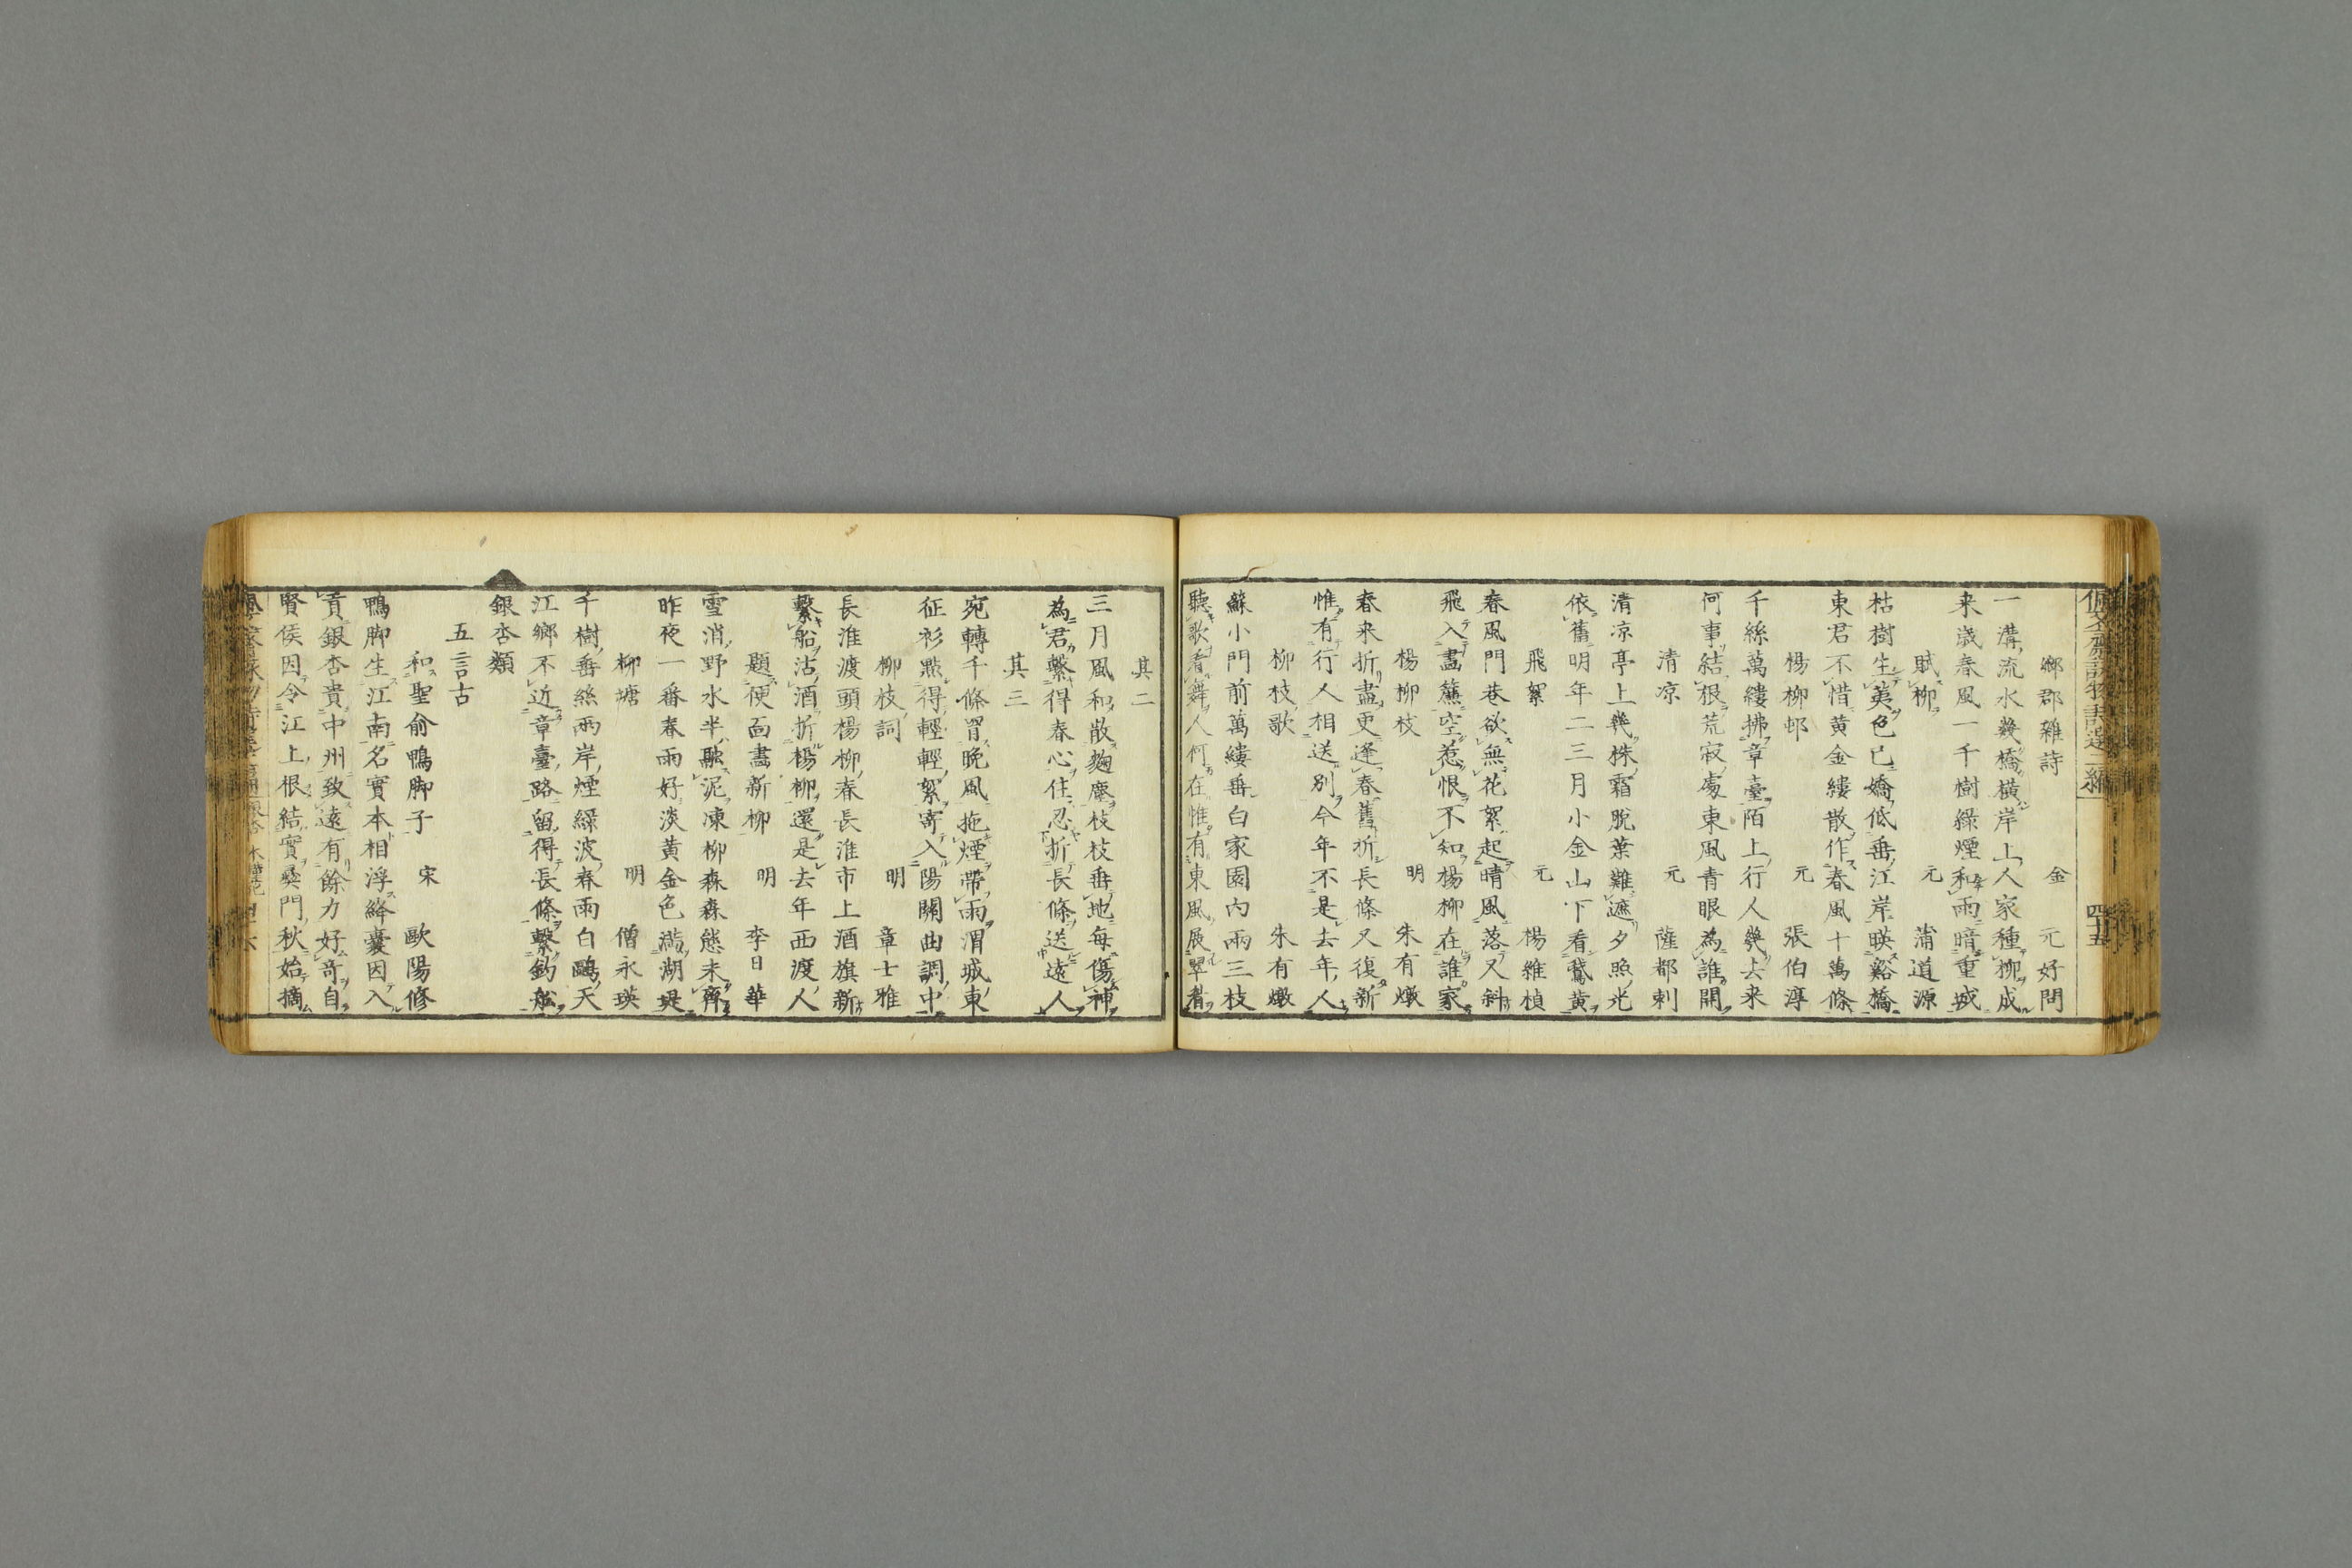 鄉郡雜詩 金 元好問
一溝流水幾橋橫岸上人家種柳成
来歲春風一千樹綠煙和雨暗重城
賦柳 元 蒲道源
枯樹生荑色已嬌低垂江岸暎谿橋
東君不惜黄金縷散作春風十萬條
楊柳邨 元 張伯淳
千絲萬縷拂章臺陌上行人幾去来
何事結根荒寂處東風青眼為誰開
清凉 元 薩都剌
清凉亭上幾株霜脫葉難遮夕照光
依舊明年二三月小金山下看鵞黄
飛絮 元 楊維楨
春風門巷欲無花絮起晴風落又斜
飛入畫簷空惹恨不知楊柳在誰家
楊柳枝 明 朱有燉
春来折盡更逢春舊折長條又復新
惟有行人相送別今年不是去年人
柳枝歌 朱有燉
蘇小門前萬縷垂白家園内兩三枝
聽歌看舞人何在惟有東風展翠眉
其二
三月風和散麹塵枝枝垂地每傷神
為君繫得春心住忍折長條送遠人
其三
宛轉千條罥晚風拖煙帶雨渭城東
征衫點得輕輕絮寄入陽關曲調中
柳枝詞 明 章士雅
長淮渡頭楊柳春長淮市上酒旗新
繫船沽酒折楊柳還是去年西渡人
題便面畫新柳 明 李日華
雪消野水半融泥凍柳森森態未齊
昨夜一番春雨好淡黄金色滿湖堤
柳塘 明 僧永瑛
千樹垂絲兩岸煙綠波春雨白鷗天
江鄉不近章臺路留得長條繫釣船
銀杏類
五言古
和聖俞鴨脚子 宋 歐陽修
鴨脚生江南名實本相浮絳囊因入
貢銀杏貴中州致遠有餘力好奇自
賢侯因令江上根結實夷門秋始摘